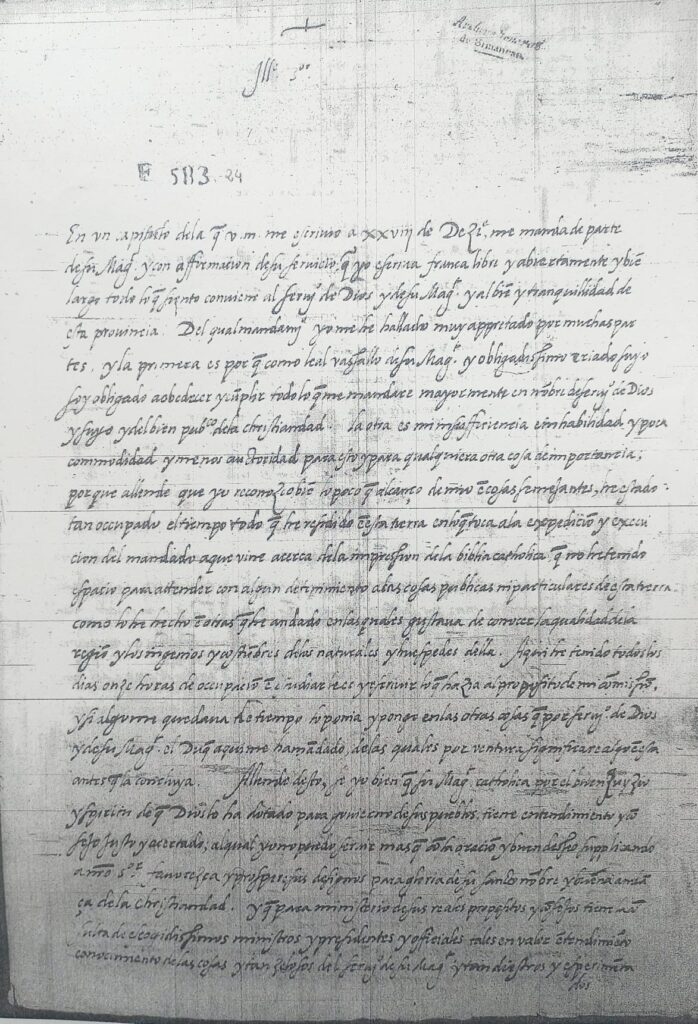 Archivo General
de Simancas
Ille Sor
E 583 24
En un capitulo dela q̃ v. m. me escrivio a xxviij de Dezie, me manda de parte
de su Mag. y con affirmacion de su servicio, q̃ yo escriva franca libre y abiertamente y biẽ
largo todo lo q̃ siento conviene al servo de Dios y de su Mag. y al biẽ y tranquilidad de
esta provincia. Del qual mandamo yo me he hallado muy appretado por muchas par
tes, y la primera es por q̃ como leal vassallo de su Mag. y obligadissimo criado suyo
soy obligado a obedecer y cũplir todo lo q̃ me mandare mayormente en nõbre de servo de Dios
y suyo y del bien pubco dela christiandad. la otra es mi insufficiencia e inhabilidad y poca
commodidad y menos auctoridad para esto y para qualquiera otra cosa de importancia;
porque allende que yo reconozco biẽ lo poco q̃ alcanço de mio ẽ cosas semejantes, he estado
tan occupado el tiempo todo q̃ he residido ẽ esta tierra en lo q̃ toca a la expediciõ y execu
cion del mandado a que vine acerca dela impression dela biblia catholica q̃ no he tenido
espacio para attender con algun detenimiento a las cosas publicas ni particulares de esta tierra
como lo he hecho ẽ otras q̃ he andado en las quales gustava de conocer la qualidad dela
regiõ y los ingenios y costũbres delos naturales y huespedes della. Aqui he tenido todos los
dias onze horas de occupaciõ ẽ estudiar leer y escrivir lo q̃ hazia al proposito de mi comissiõ,
y si alguno me quedava de tiempo lo ponia y pongo en las otras cosas q̃ por servo de Dios
y de su Mag. el Duq̃ aqui me ha mãdado, delas quales por ventura significare algo ẽ esta
antes q̃ la concluya. Allende desto, se yo bien q̃ su Mag. catholica por el buen
y spiritu de q̃ Dios lo ha dotado para govierno de sus pueblos, tiene entendimiento y cõ
sejo justo y acertado, al qual yo no puedo servir mas q̃ cõ la oraciõ y buen desseo supplicando
a nro Sor favorezca y prospere sus designos para gloria de su santo nõbre y buena andã
ça dela christiandad. y q̃ para ministerio de sus reales propositos y cõsejos tiene
falta de escogidissimos ministros y presidentes y officiales tales en valor ẽtendimiẽto
conocimiento de las cosas y tan zelosos del servo de su Mag. y tan diestros y esperimẽta
dos